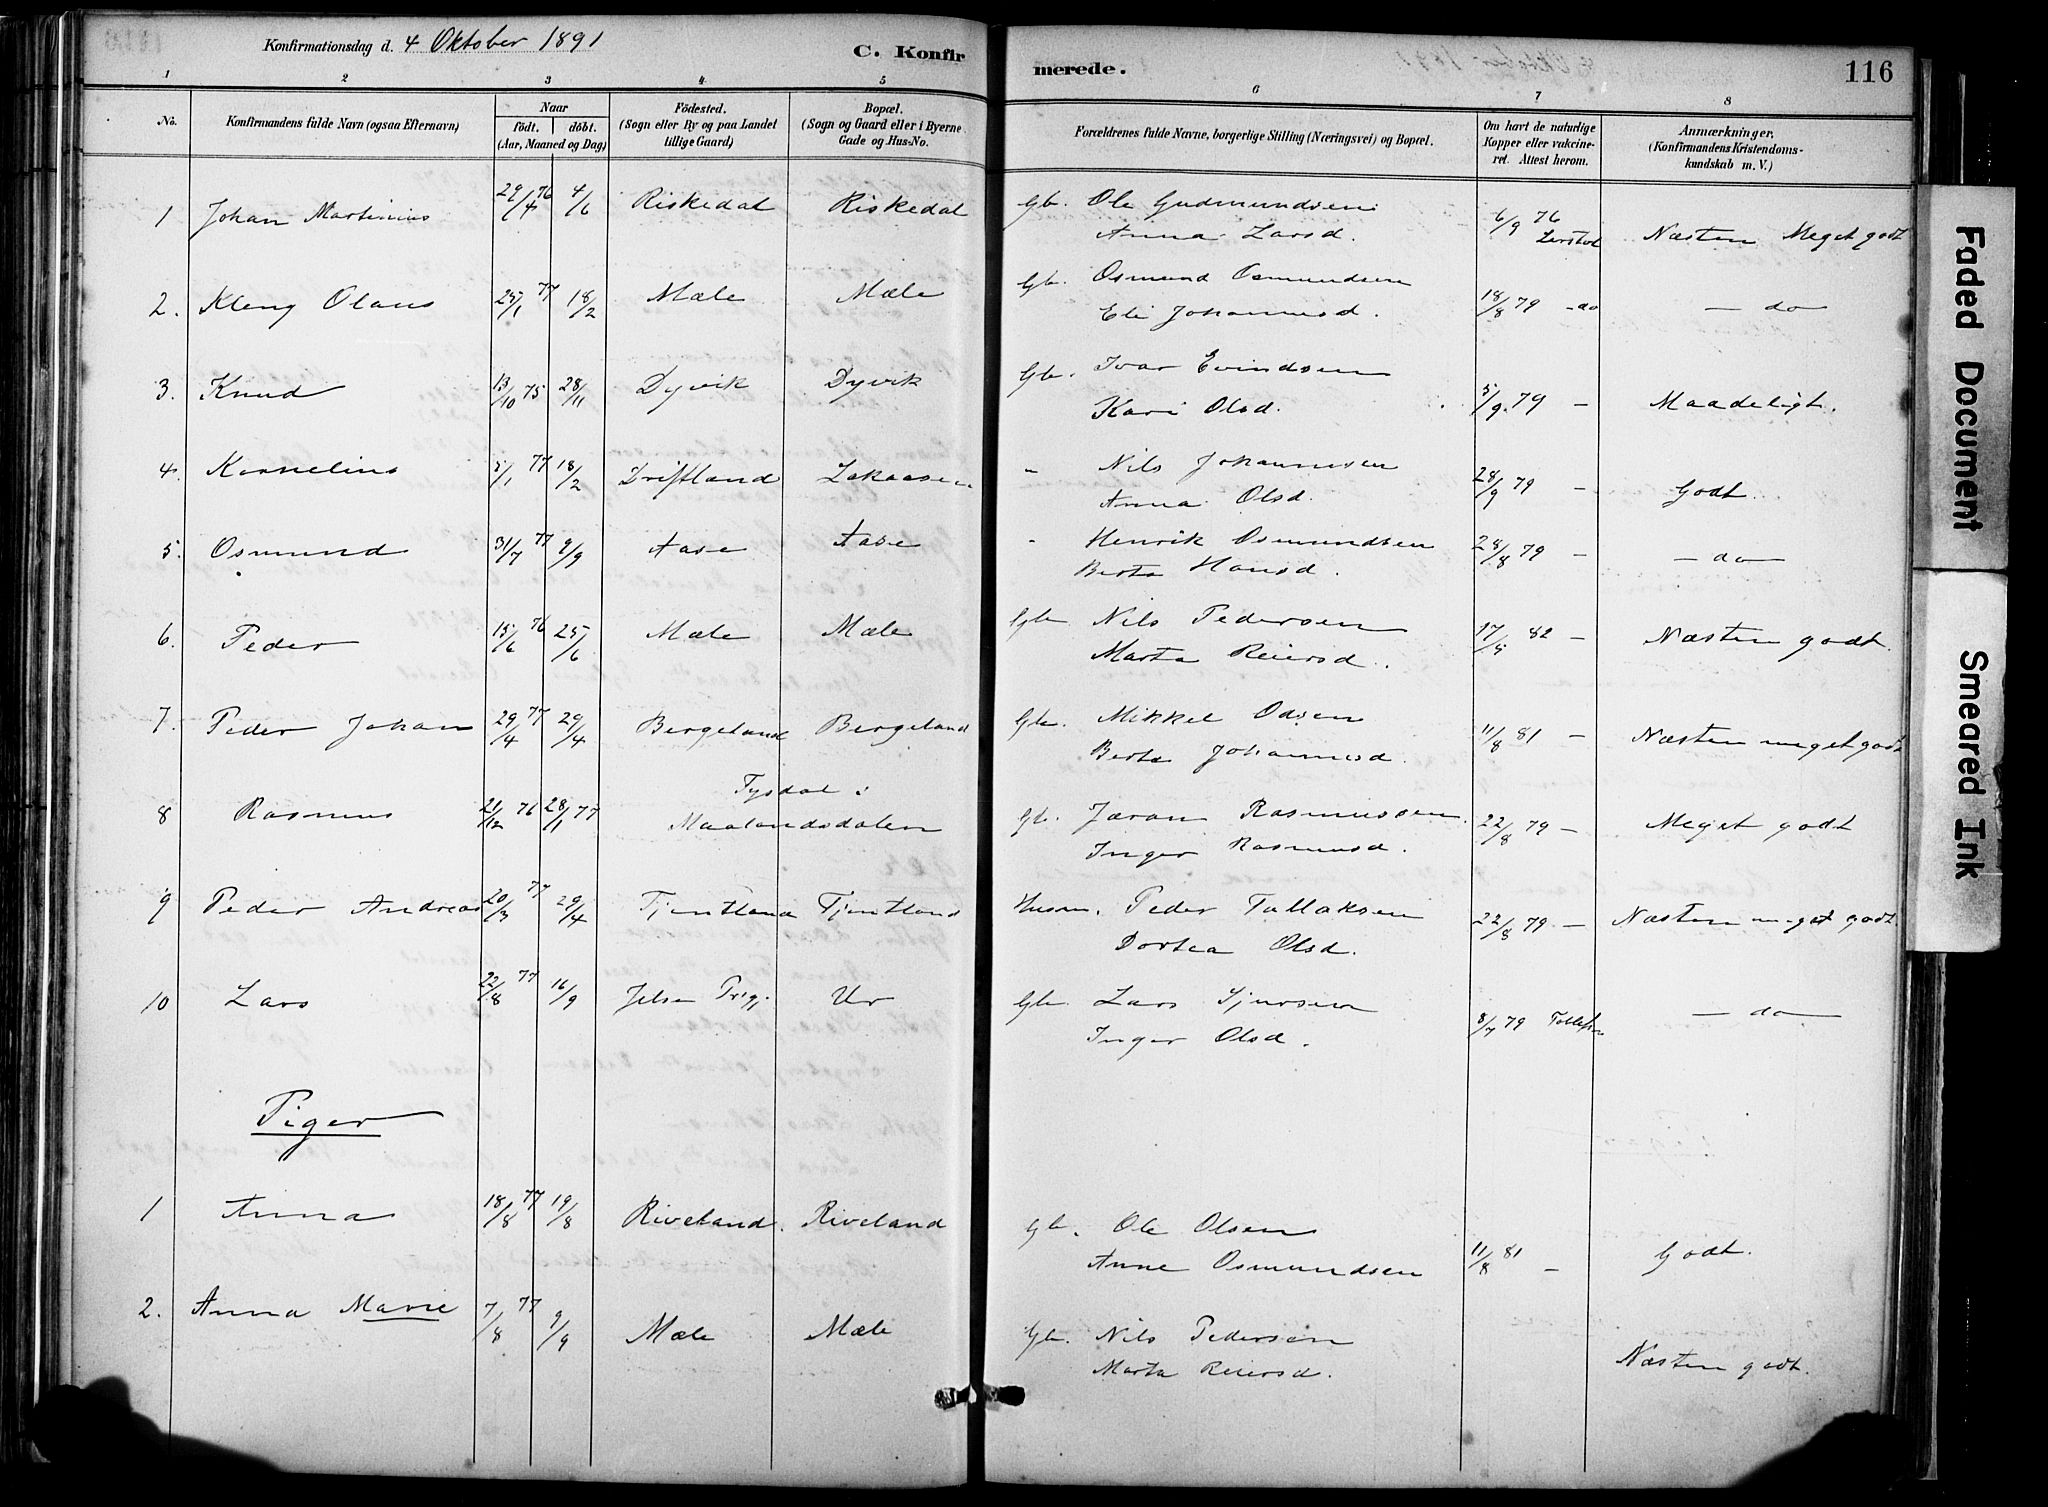 Konfirmationsdag d. 4 Oktober 1891
C. Konfirmerede.
116
1 2 3 4 5 6 7 8
No.
Konfirmandens fulde Navn (ogsaa Efternavn)
Naar
födt. döbt.
(Aar, Maaned og Dag)
Födested.
(Sogn eller By og paa Landet
tillige Gaard)
Bopæl.
(Sogn og Gaard eller i Byerne
Gade og Hus-No.
Forældrenes fulde Navne, borgerlige Stilling (Næringsvei) og Bopæl.
Om havt de naturlige
Kopper eller vakcine-
ret. Attest herom.
Anmærkninger,
(Konfirmandens Kristendoms-
kundskab m. V.)
1 Johan Martinius 29/4 76 4/6 Riskedal Riskedal Gb. Ole Gudmundsen 6/9 76 Næsten Meget godt
Anna Larsd.
2. Kleng Olaus 25/1 77 18/2 Mæle Mæle Gb. Osmund Osmundsen 18/8 79 - do - do
Eli Johannesd.
3. Knud 13/10 75 28/11 Dyvik Dyvik Gb. Ivar Evindsen 5/9 79 - Maadeligt.
Kari Olsd.
4. Kornelius 5/1 77 18/2 Driftland Lakaasen " Nils Johannesen 28/9 79 - Godt.
Anna Olsd.
5. Osmund 31/7 77 9/9 Aase Aase " Henrik Osmundsen 28/8 79 - - do
Berta Hansd.
6. Peder 15/6 76 25/6 Mæle Mæle Gb. Nils Pedersen 17/5 82 - Næsten godt.
Marta Reiersd.
7. Peder Johan 29/4 77 29/4 Bergeland Bergeland Gb. Mikkel Odsen 11/8 81 - Næsten meget godt
Berta Johannesd.
8 Rasmus 21/12 76 28/1 77 Tysdal i Gb. Jøran Rasmussen 22/8 79 - Meget godt
Maalandsdalen Inger Rasmusd.
9 Peder Andreas 20/3 77 29/4 Tjentland Tjentland Husm. Peder Tallaksen 22/8 79 - Næsten meget godt.
Dortea Olsd.
10 Lars 22/8 77 16/9 Jelse Prgj. Ur Gb. Lars Sjursen 8/7 79 - do
Inger Olsd.
Piger
1 Anna 18/8 77 19/8 Riveland. Riveland Gb. Ole Olsen 11/8 81 - Godt.
Anne Osmundsen
2. Anna Marie 7/8 77 9/9 Mæle Mæle Gb. Nils Pedersen Næsten godt.
Marta Reiersd.
Faded Document
Smeared Ink